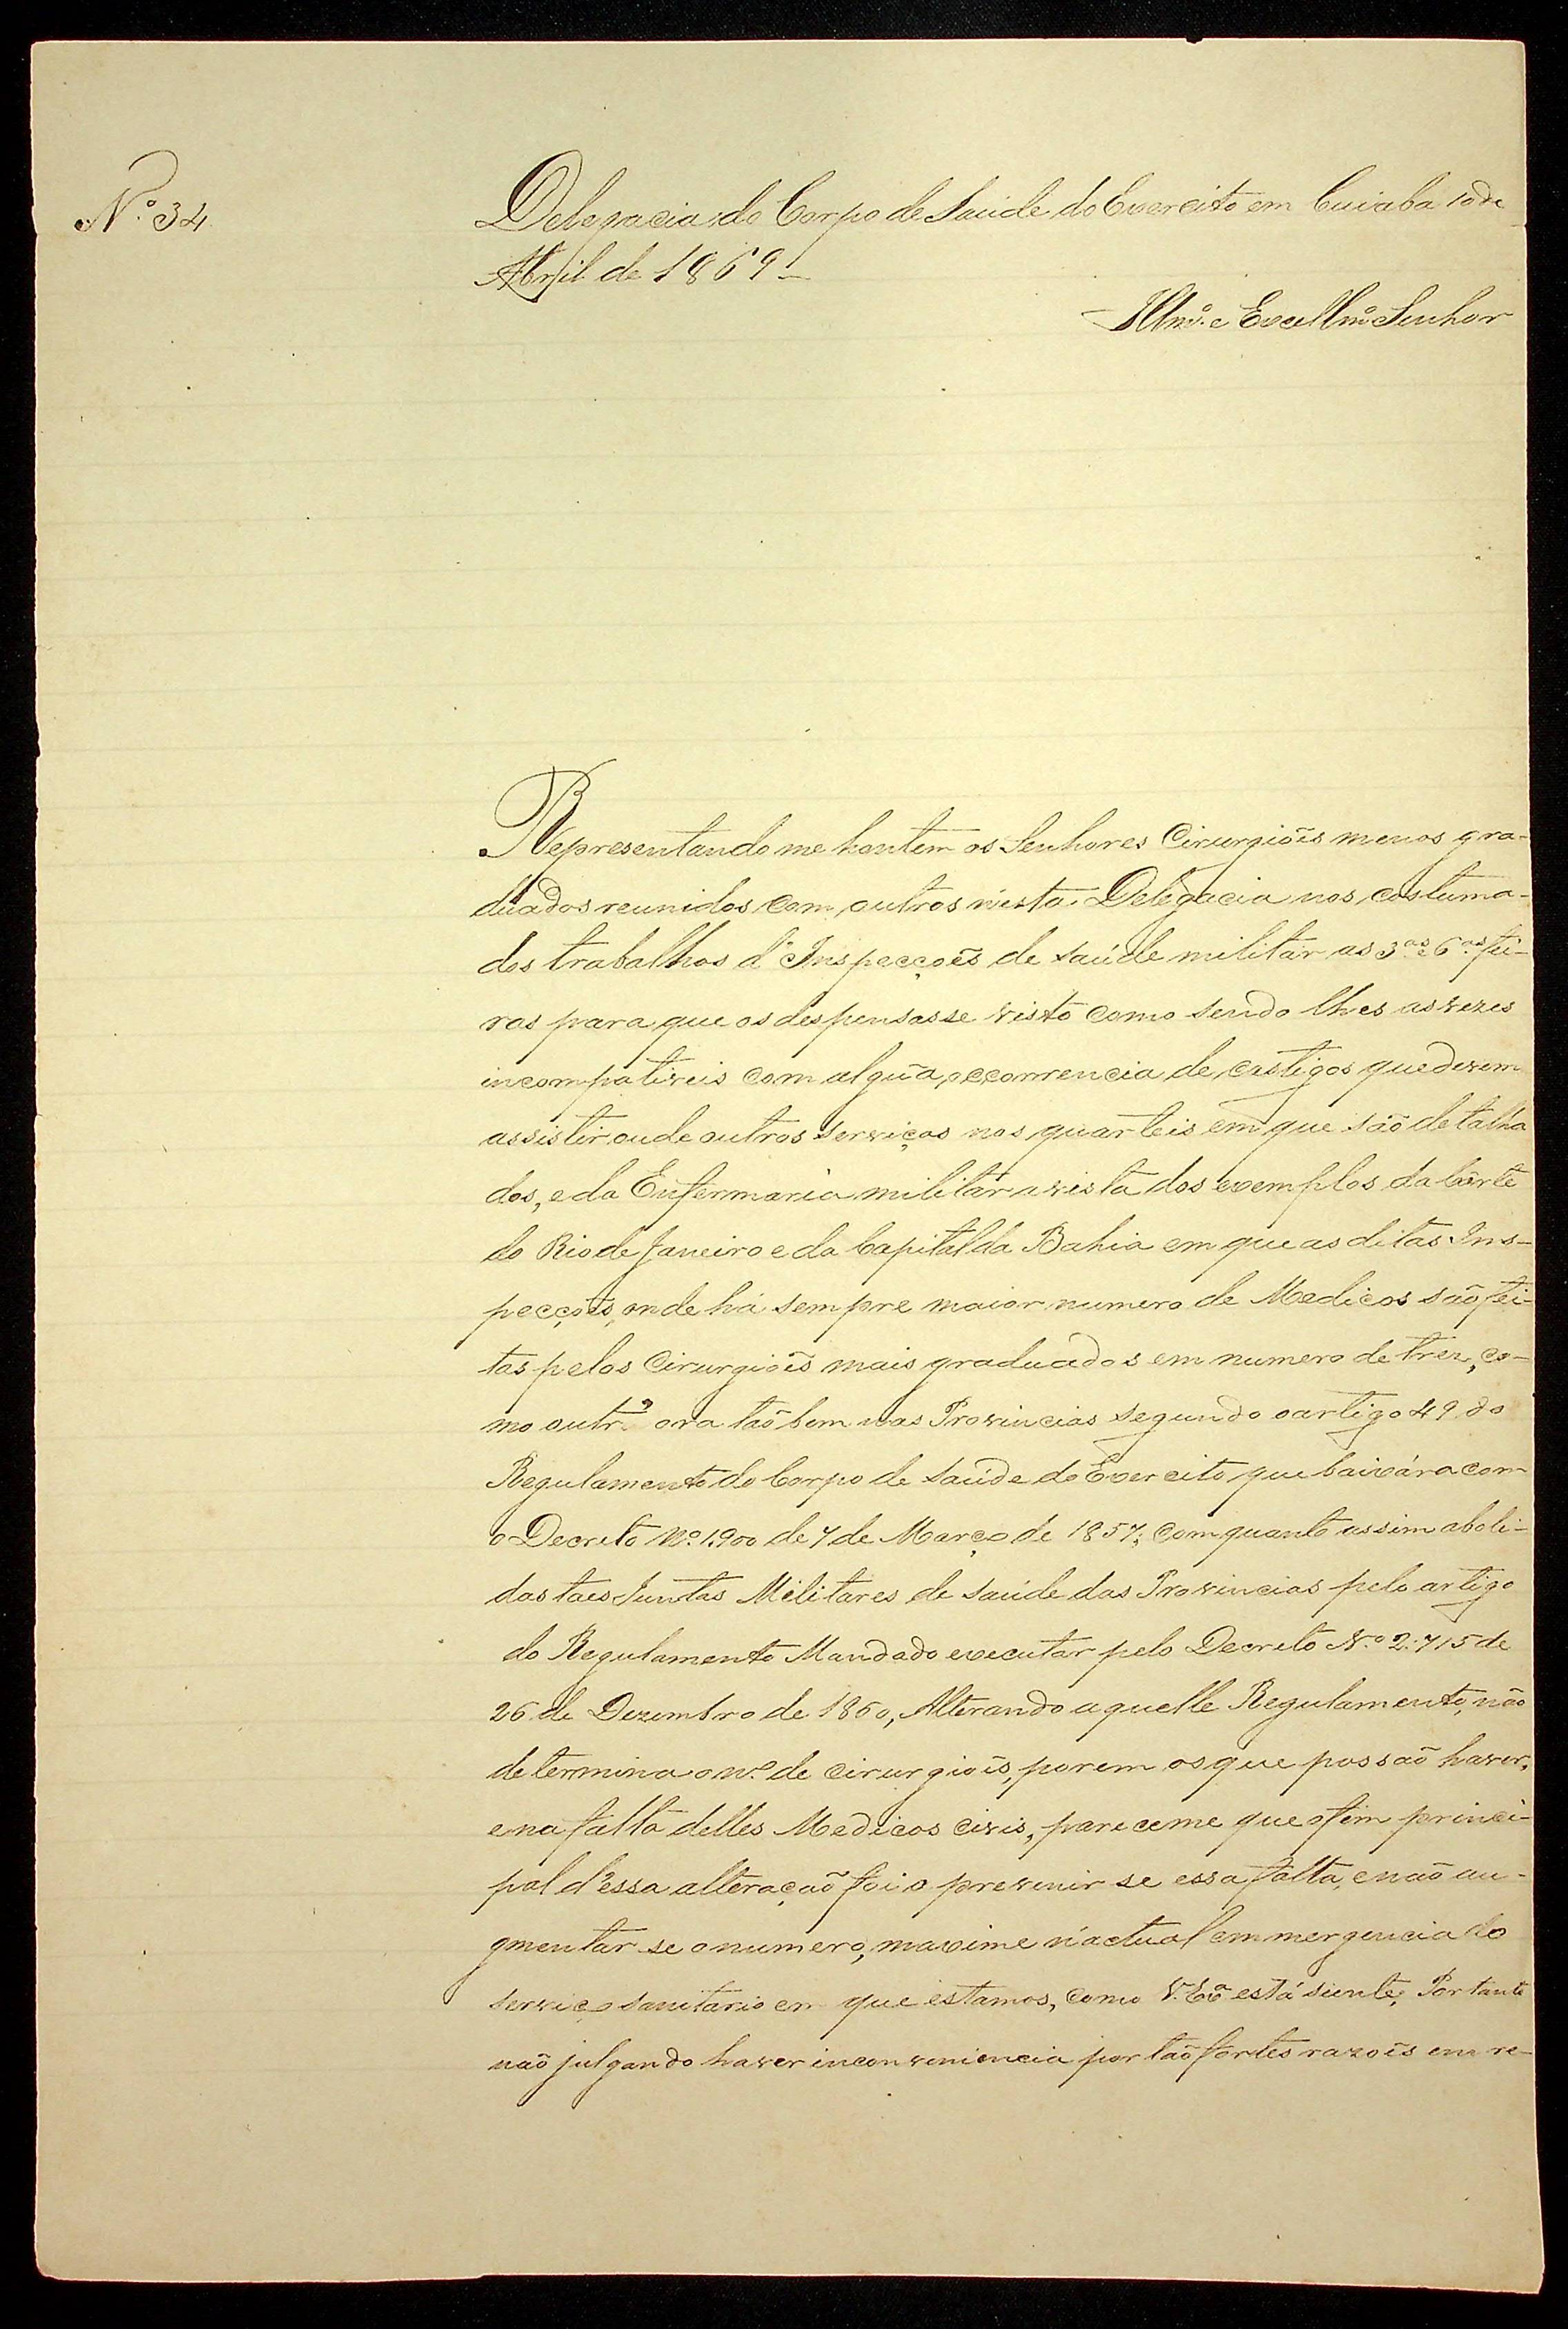 N.º 34.
Delegacia do Corpo de Saúde do Exercito em Cuiabá 10 de
Abril de 1869
Illmº. e Excellmº Senhor
Representando me hontem os Senhores Cirurgiões menos gra-
duados reunidos com outros nésta Delegacia nos costuma-
dos trabalhos d'Inspecções de saúde militar as 3.as e 6.as fei-
ras para que os despensasse visto como sendo lhes as vezes
incompativeis com algũa occorrencia de castigos que devem
assistir ou de outros serviços nos quarteis em que são detalha
dos, e da Enfermaria militar a vista dos exemplos da Côrte
do Rio de Janeiro e da Capital da Bahia em que as ditas Ins-
pecções, onde há sempre maior numero de Medicos são fei-
tas pelos Cirurgiões mais graduados em numero de trez, co-
mo outr'ora tão bem nas Provincias segundo o artigo 49 do
Regulamento do Corpo de Saúde do Exercito que baixára com
o Decreto Nº. 1.900 de 7 de Março de 1857; com quanto assim aboli-
das taes Juntas Militares de Saúde das Provincias pelo artigo
do Regulamento Mandado executar pelo Decreto N.º 2.715 de
26 de Dezembro de 1860, Alterando aquelle Regulamento, não
determina o nº. de cirurgiões, porem os que possaõ haver,
e na falta delles Medicos civis, parece me que o fim princi-
pal d'essa alteraçaõ foi o prevenir se essa falta, e naõ au-
gmentar se o numero, maxime n'actual emmergencia do
serviço sanitario em que estamos, como V. Exª está siente; Por tanto
naõ julgando haver inconveniencia por taõ fortes razoẽs em re-